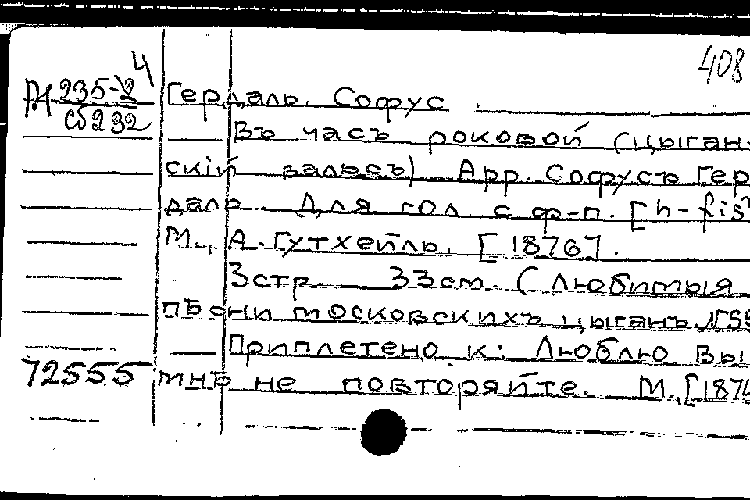 408
4
М 235-2
Сб232
Гердаль. Софус
Въ часъ роковой (цыган-
скій вальсъ) Арр. Софусъ Гер
даль. Для гол с ф-п. [h-fis
М., А. Гутхейль. [1876].
3стр 33см (Любимыя
пѣсни московскихъ цыганъ. №55
Приплетено к: Люблю вы
72555 мнѣ не повторяйте. М., [187